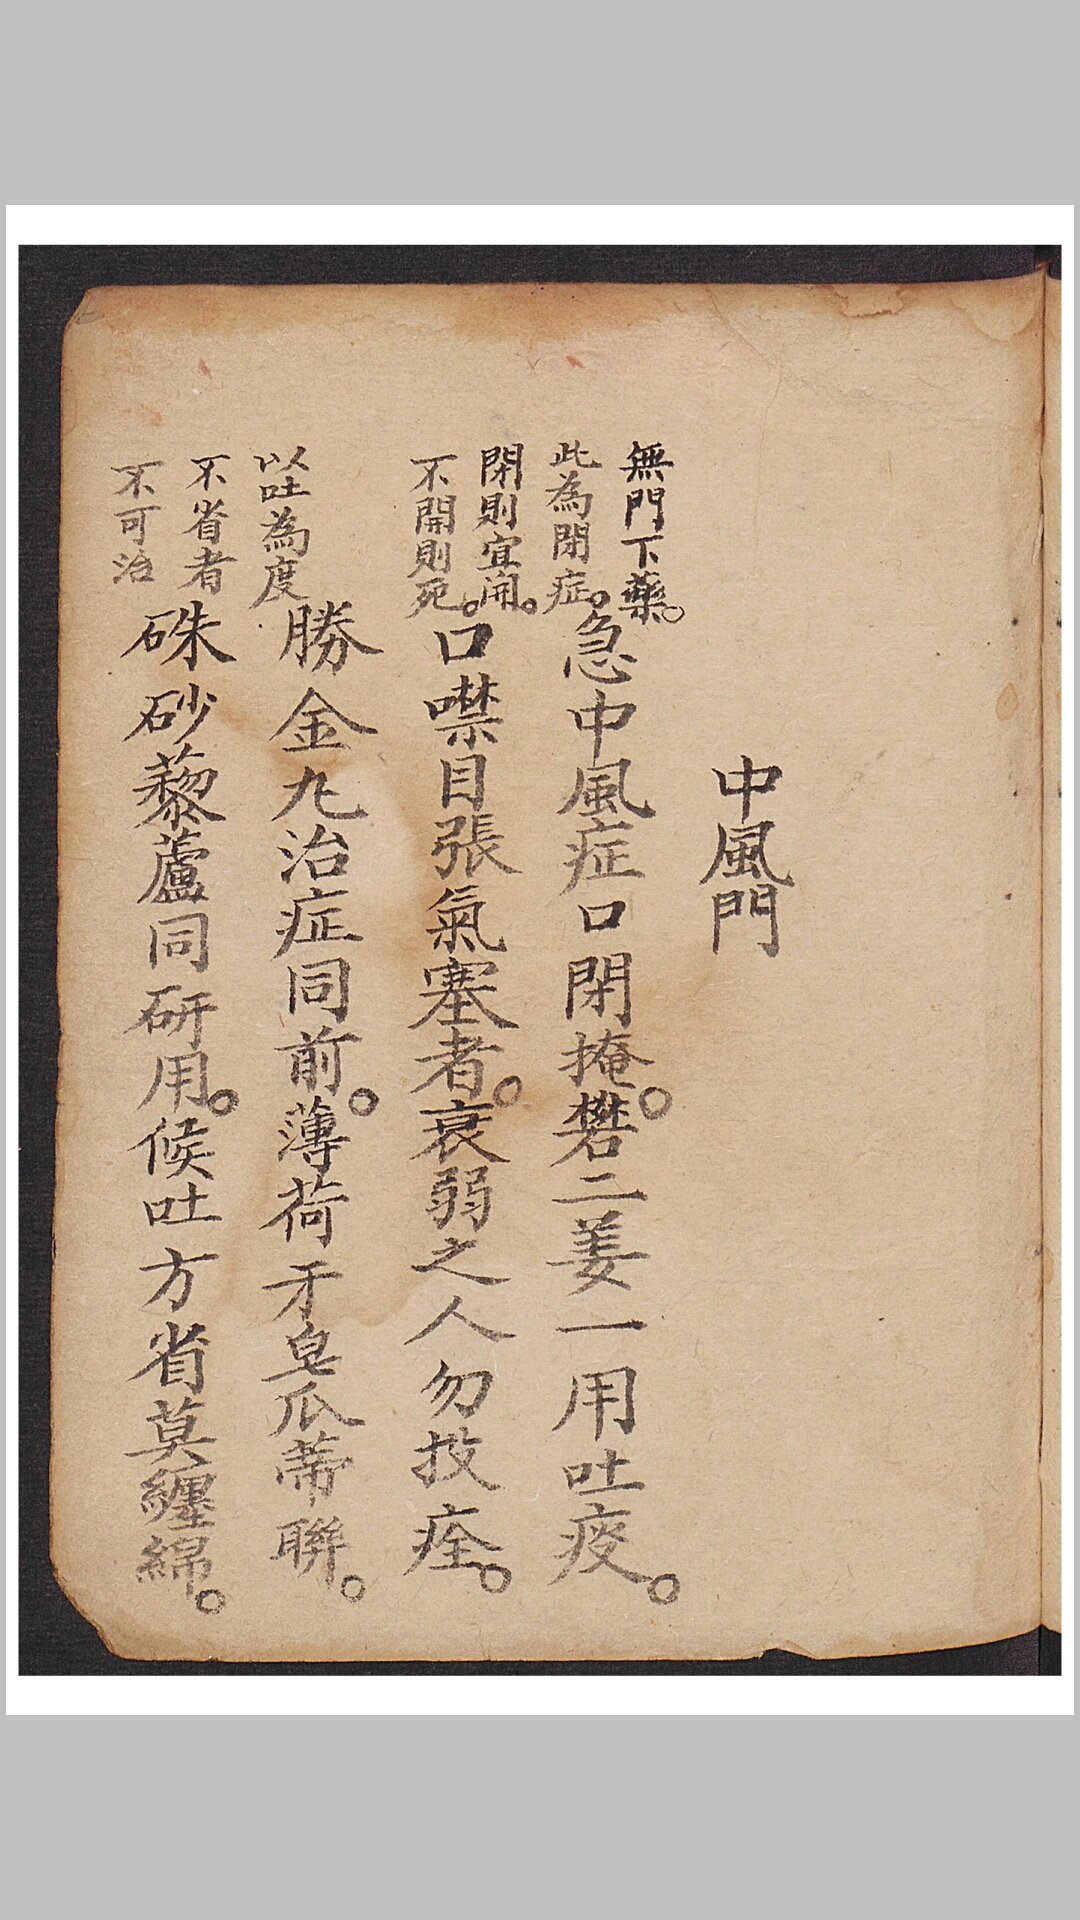 中風門
無門下藥。
此為閉症。
急中風症口閉掩。礬二姜一用吐痰。
閉則宜開。
不開則死。
口噤目張氣塞者。衰弱之人勿投痊。
以吐為度
勝金九治症同前。薄荷牙皂瓜蒂聯。
不省者
不可治
硃砂藜蘆同研用。候吐方省莫纏綿。